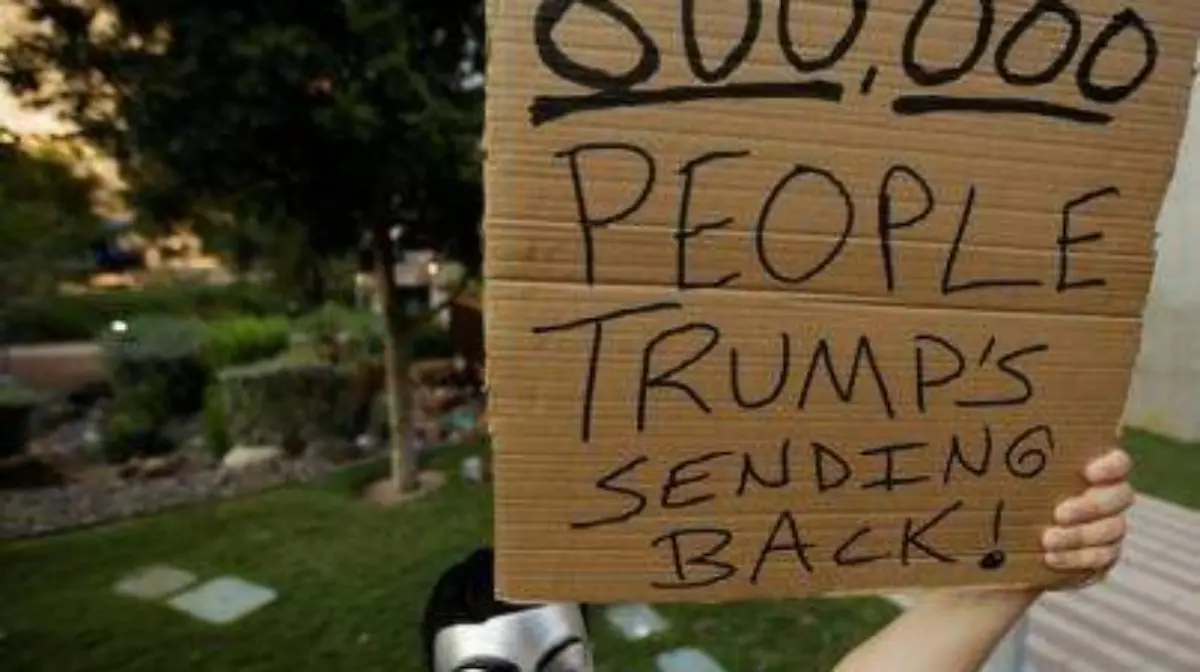 800,000
PEOPLE
TRUMP'S
SENDING
BACK!